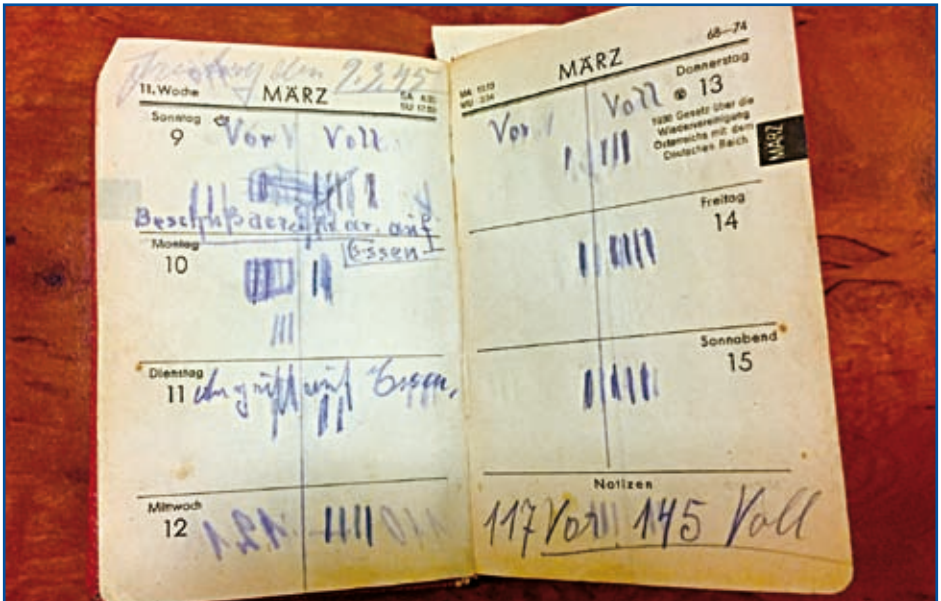 den 9.3.45
11. Woche MÄRZ
Sonntag
9 Vor Voll
Beschuß auf
Essen
Montag
10
Dienstag
11 Angriff auf Essen.
Mittwoch
12
68—74
MÄRZ
Donnerstag
13
Vor Voll
1938 Gesetz über die
Wiedervereinigung
Österreichs mit dem
Deutschen Reich
MÄRZ
Freitag
14
Sonnabend
15
Notizen
117 Vor 145 Voll